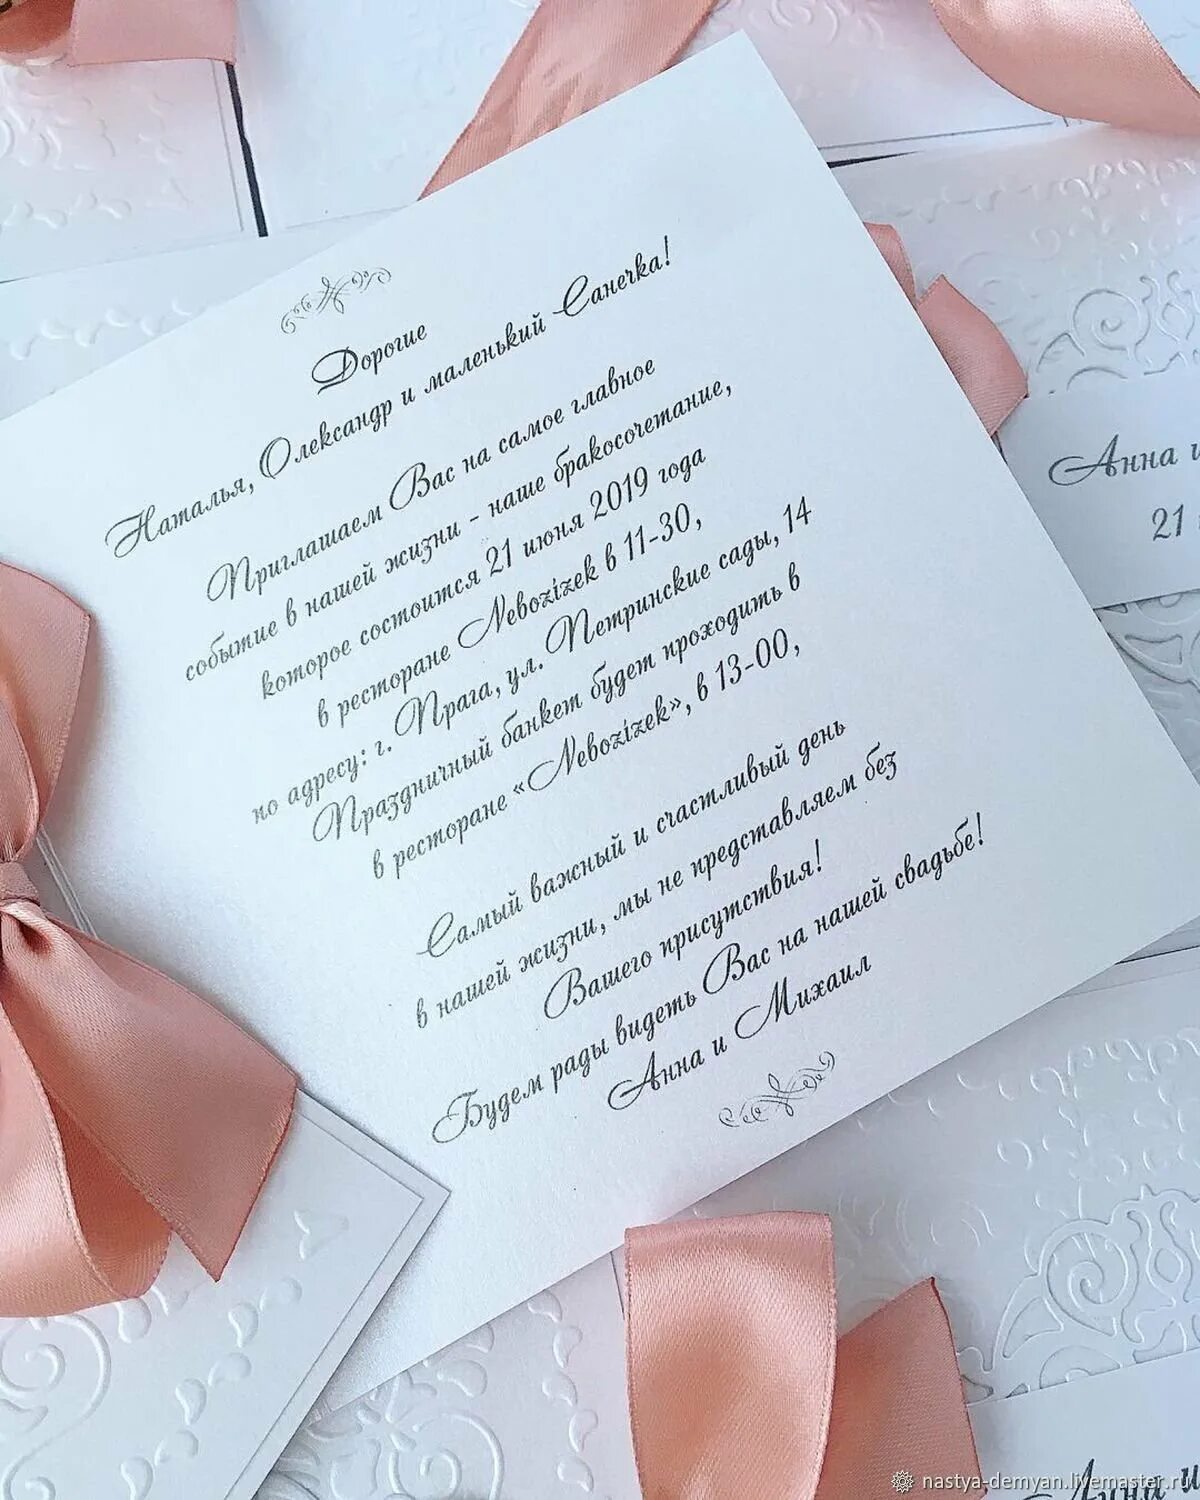 Дорогие
Наталья, Олександр и маленький Санечка!
Приглашаем Вас на самое главное
событие в нашей жизни - наше бракосочетание,
которое состоится 21 июня 2019 года
в ресторане Nebozizek в 11-30,
по адресу: г. Прага, ул. Петринские сады, 14
Праздничный банкет будет проходить в
в ресторане «Nebozizek», в 13-00,
Самый важный и счастливый день
в нашей жизни, мы не представляем без
Вашего присутствия!
Будем рады видеть Вас на нашей свадьбе!
Анна и Михаил
Анна и
21
Анна и
nastya-demyan.livemaster.ru